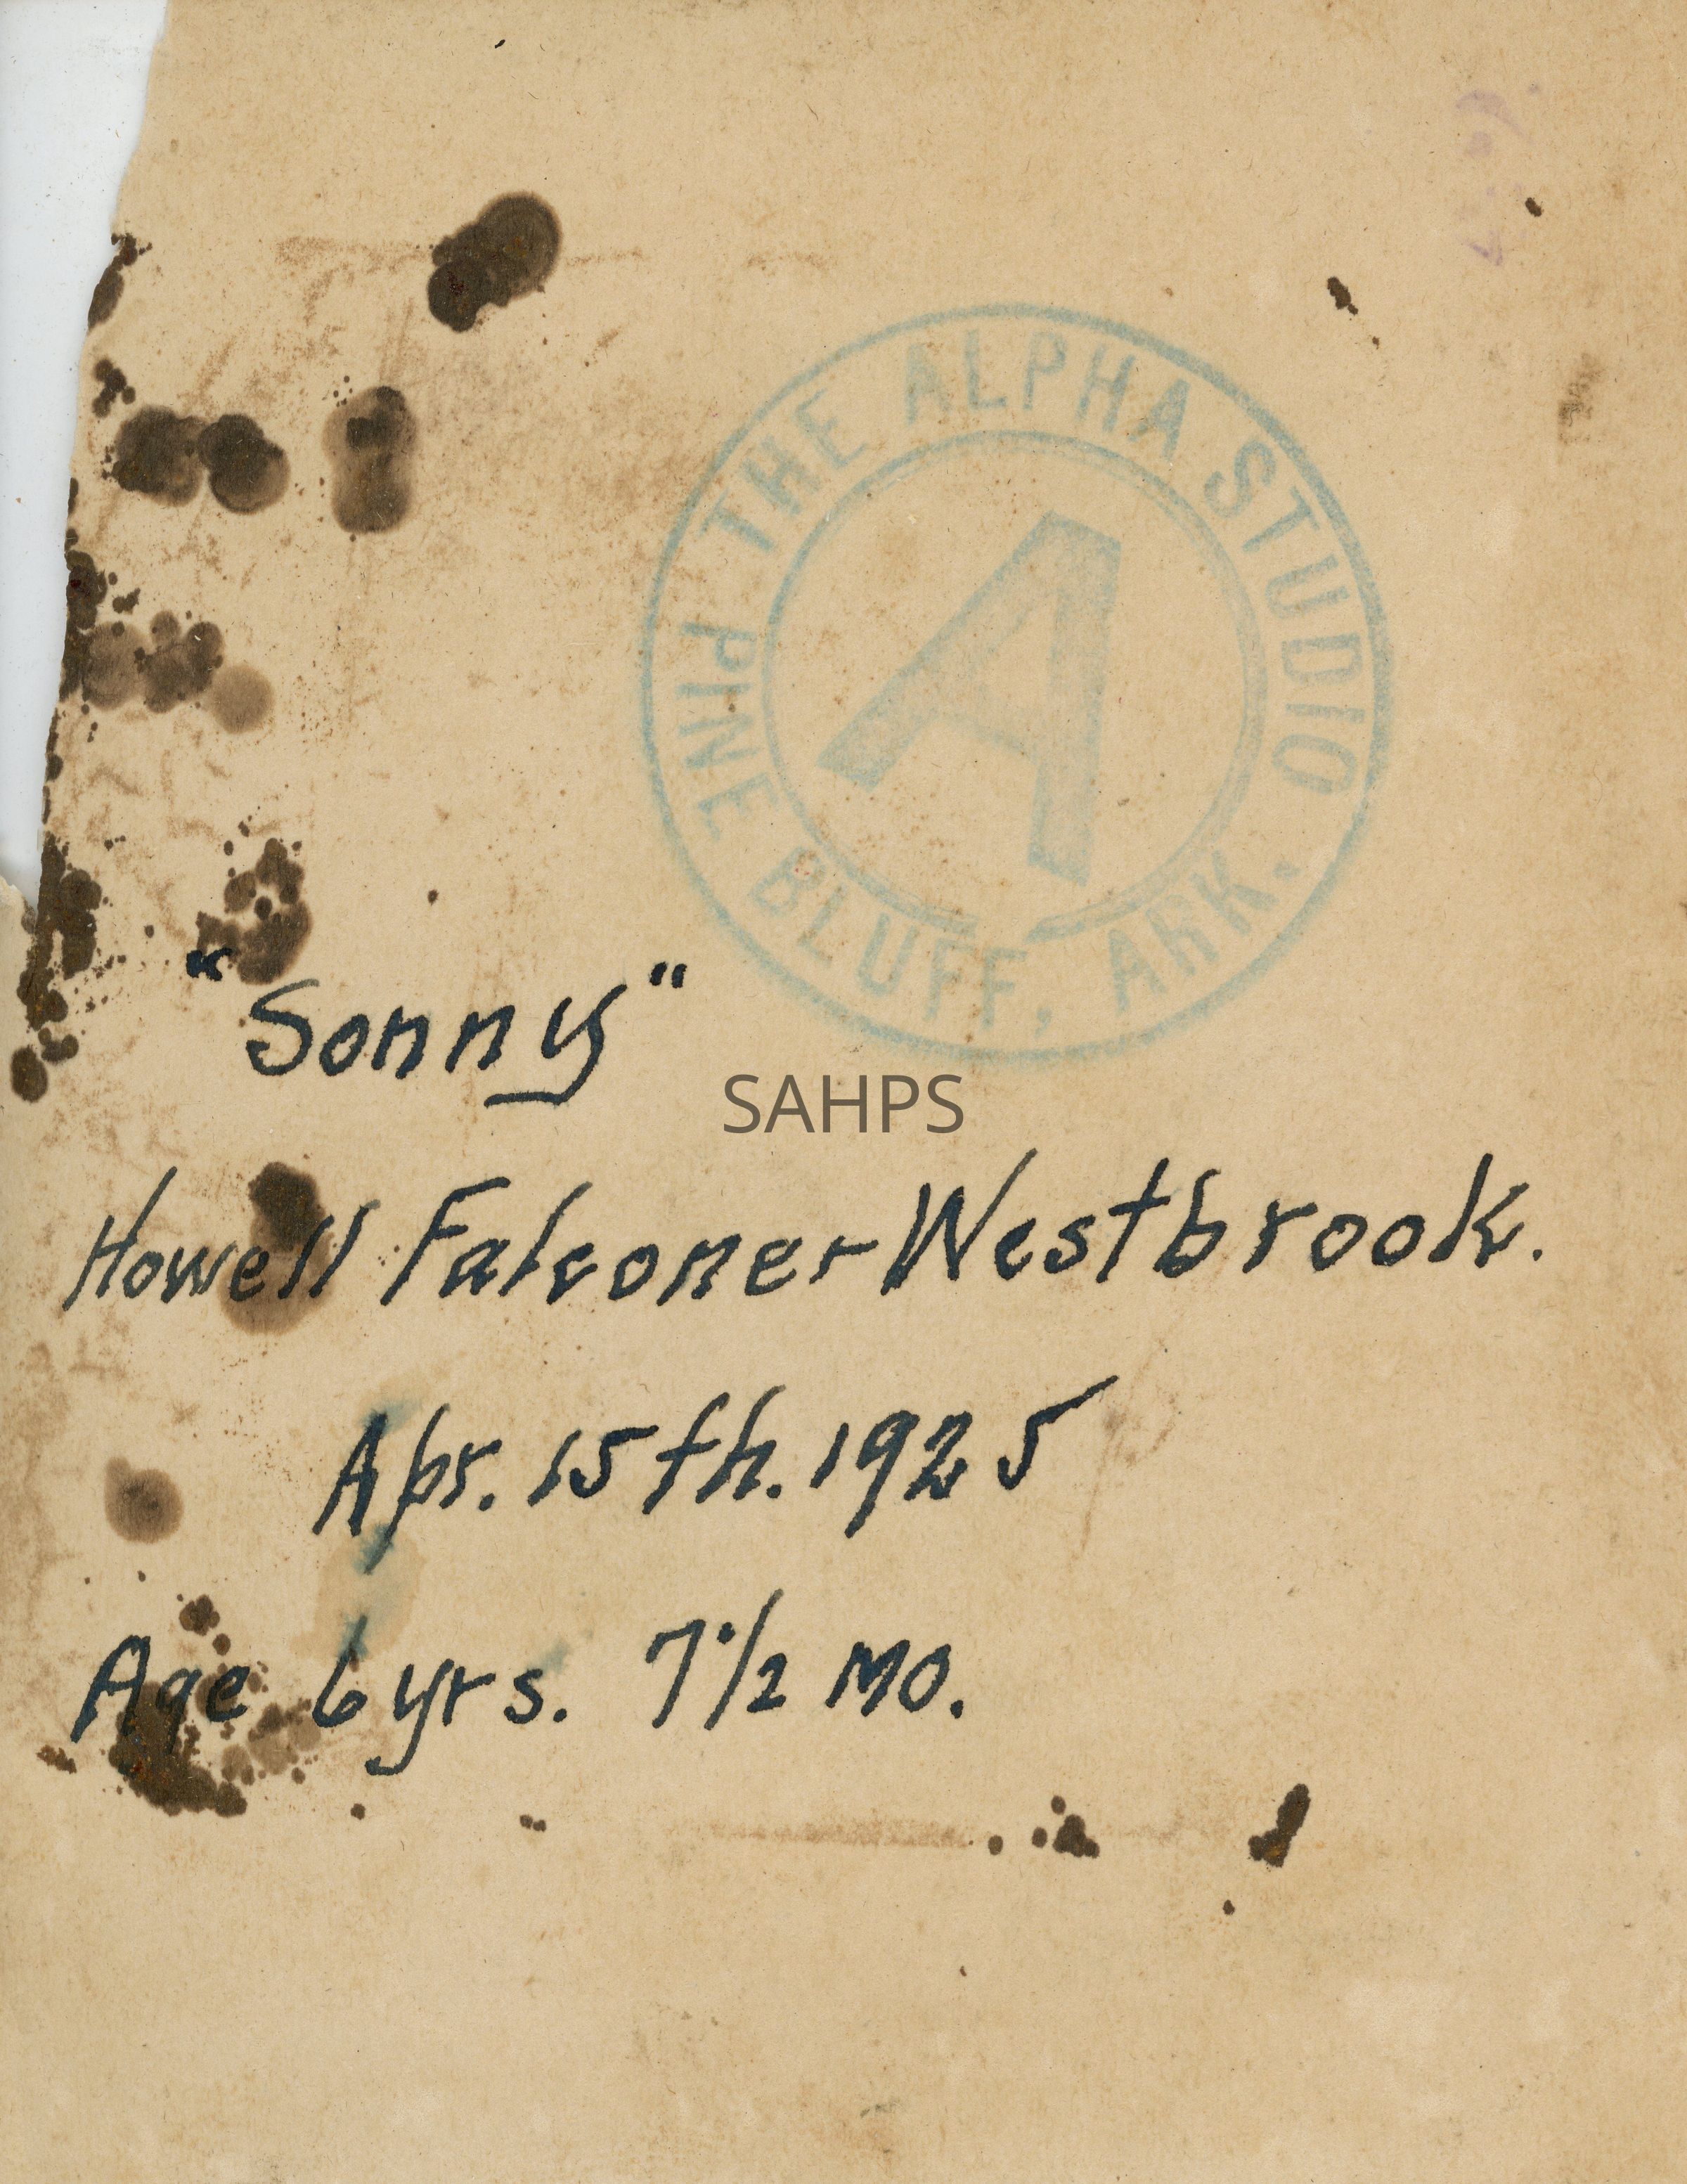 THE ALPHA STUDIO
PINE BLUFF, ARK.
A
"Sonny"
SAHPS
Howell Falconer Westbrook.
Apr. 15th. 1925
Age 6 yrs. 7 1/2 mo.